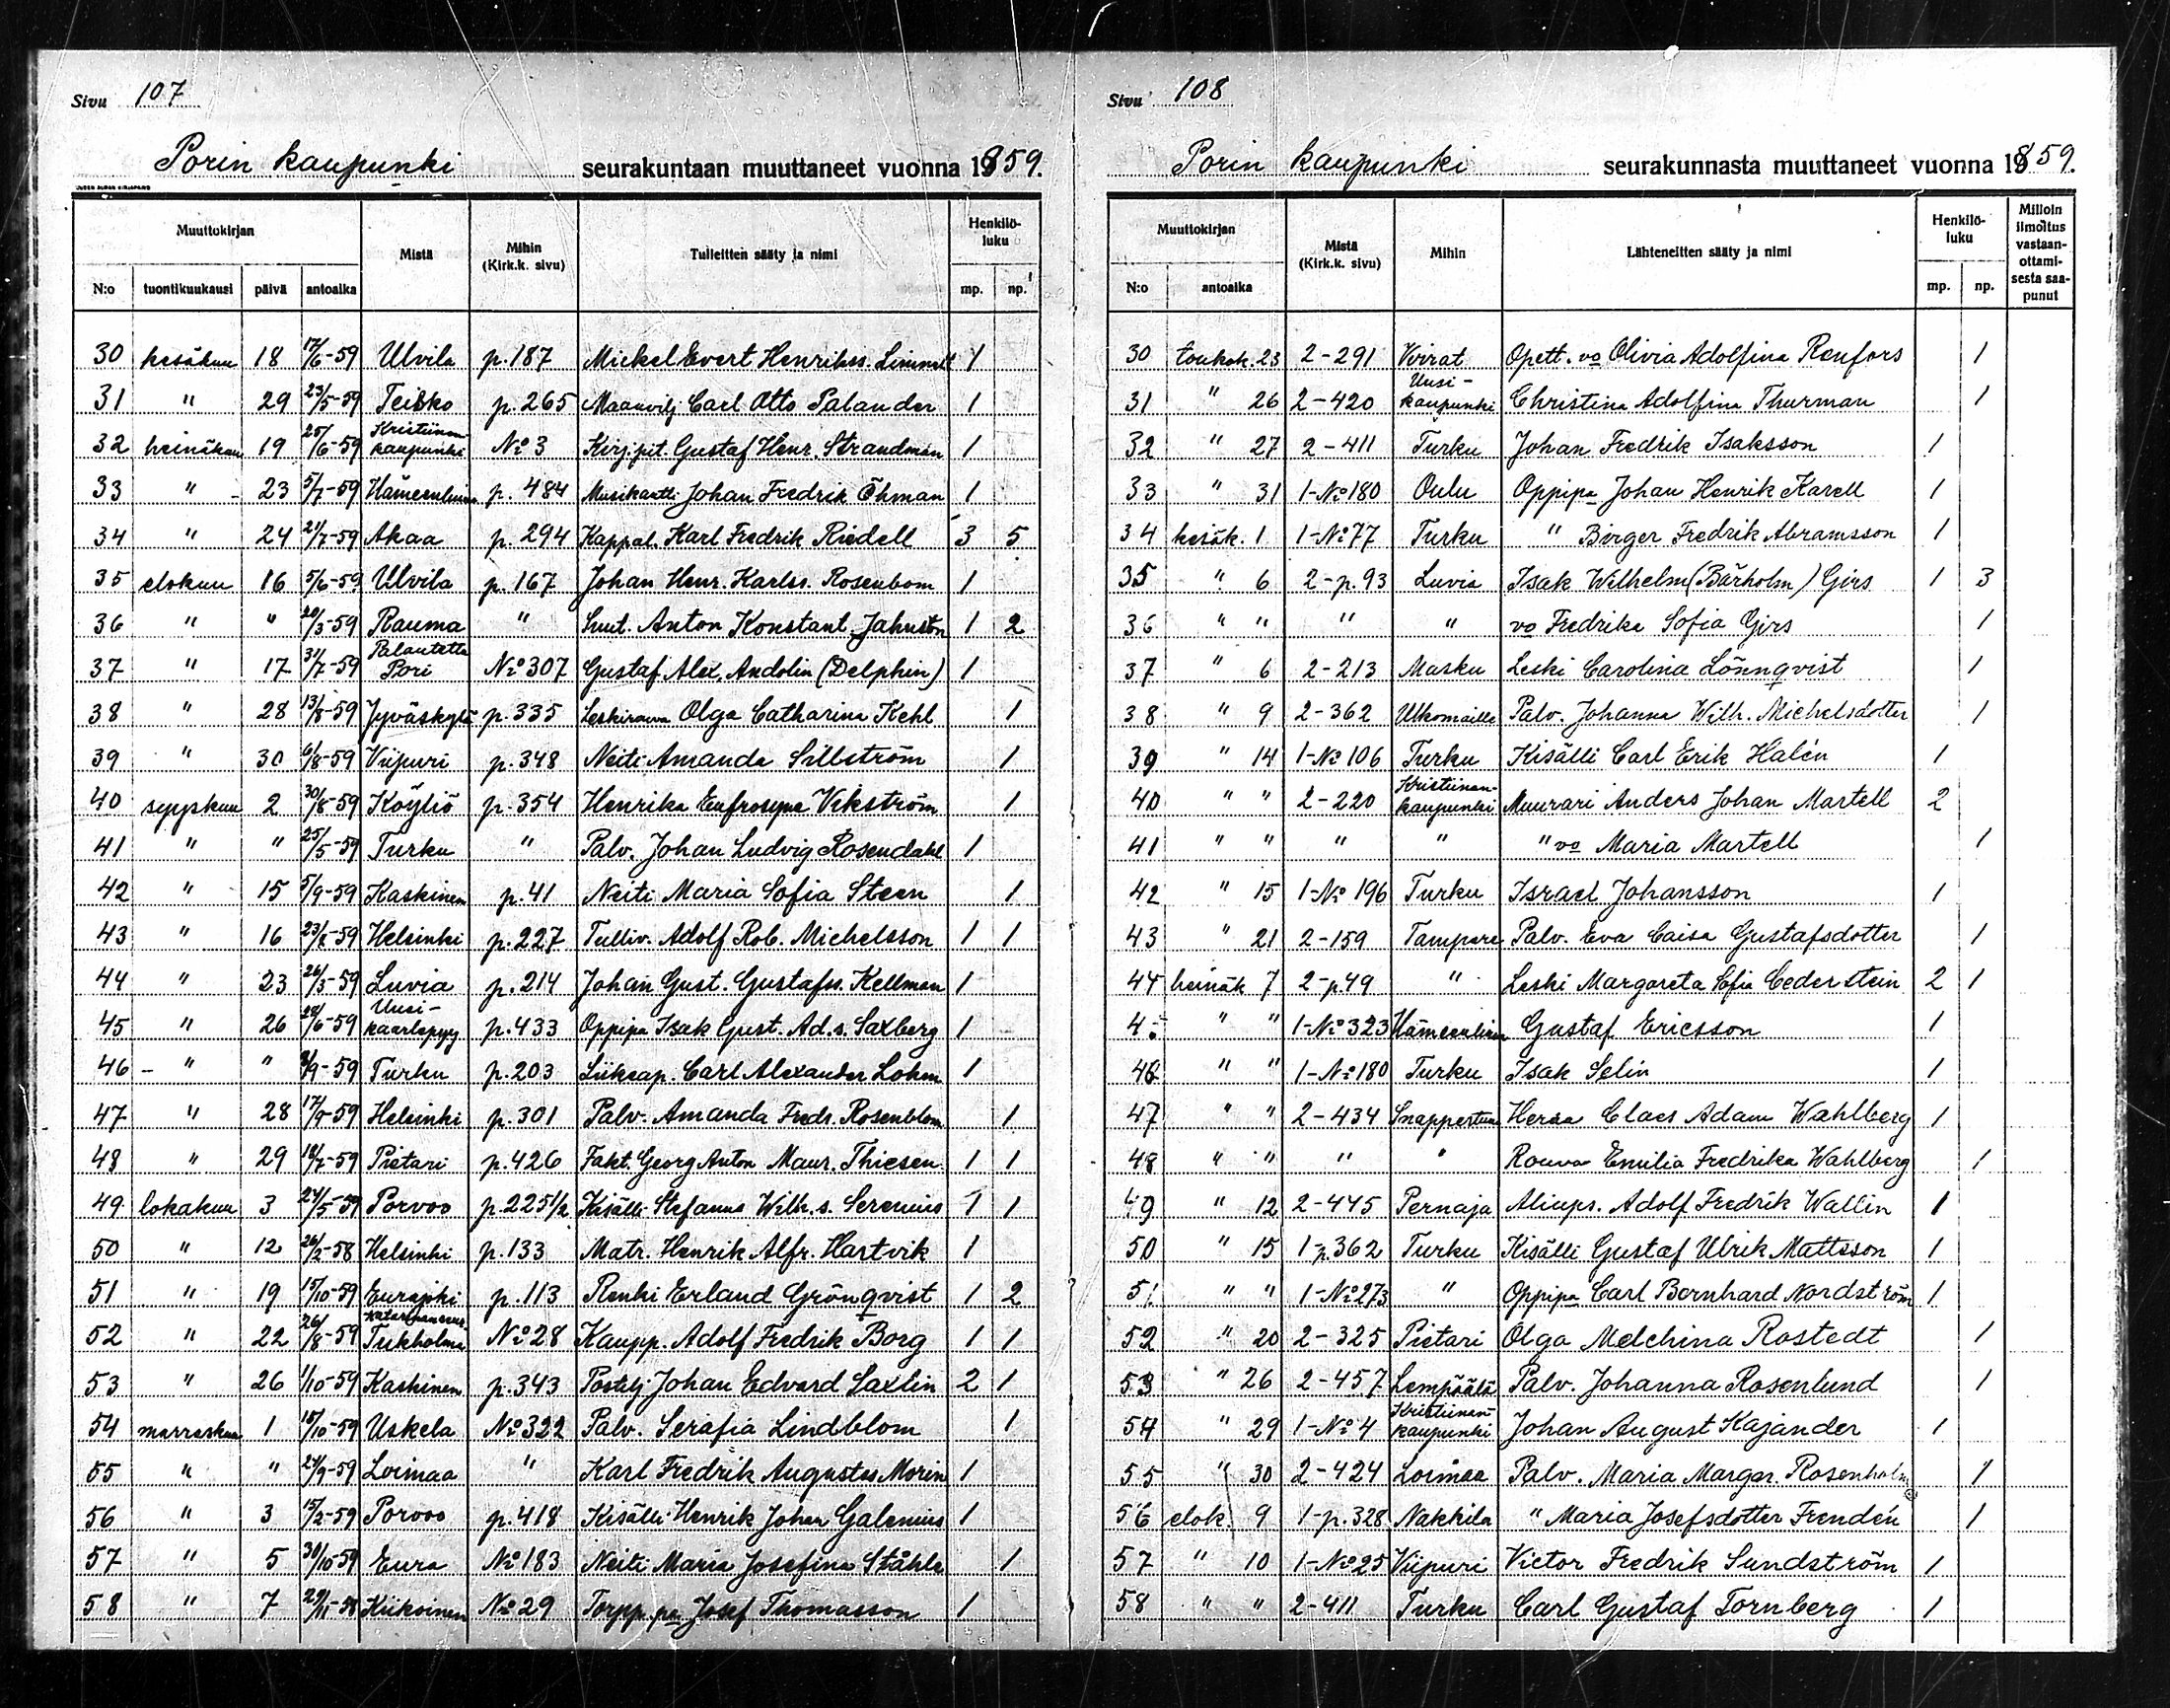 Sivu 107
Porin kaupunki seurakuntaan muuttaneet vuonna 1859.
Muuttokirjan Mistä Mihin (Kirk.k. sivu) Tulleitten sääty ja nimi Henkilö-luku
N:o tuontikuukausi päivä antoaika mp. np.
30 kesäkuu 18 17/6-59 Ulvila p.187 Mickel Evert Henrikss. 1
31 " 29 23/5-59 Teisko p.265 Maanvilj. Carl Otto Palander 1
32 heinäkuu 19 25/6-59 Kristiinankaupunki No 3 Kirj.pit. Gustaf Henr. Strandman 1
33 " 23 5/7-59 Hämeenlinna p.484 Musikantti Johan Fredrik Öhman 1
34 " 24 21/7-59 Akaa p.294 Kappal. Karl Fredrik Riedell 3 5
35 elokuu 16 5/6-59 Ulvila p.167 Johan Henr. Karlss. Rosenbom 1
36 " " 20/3-59 Rauma " Suut. Anton Konstant. 1 2
37 " 17 31/7-59 Palautettu Pori No 307 Gustaf Alex. Andolin (Delphin) 1
38 " 28 13/8-59 Jyväskylä p.335 Leskirouva Olga Catharina Kehl 1
39 " 30 6/8-59 Viipuri p.348 Neiti Amanda Sillström 1
40 syyskuu 2 30/8-59 Köyliö p.354 Henrika Eufrosyna Vikström 1
41 " " 25/5-59 Turku " Palv. Johan Ludvig Rosendahl 1
42 " 15 5/9-59 Kaskinen p.41 Neiti Maria Sofia Steen 1
43 " 16 23/8-59 Helsinki p.227 Tulliv. Adolf Rob. Michelsson 1 1
44 " 23 26/3-59 Luvia p.214 Johan Gust. Gustafss. Kellman 1
45 " 26 28/6-59 Uusikaarlepyy p.433 Oppipa Isak Gust. Ad.s. Saxberg 1
46 " " /9-59 Turku p.203 Liikeap. Carl Alexander Lohm 1
47 " 28 17/9-59 Helsinki p.301 Palv. Amanda Fredr. Rosenblom 1
48 " 29 18/7-59 Pietari p.426 Fakt. Georg Anton Maur. Thiesen 1 1
49 lokakuu 3 24/5-59 Porvoo p.225 1/2 Kisälli Stefanus Wilh.s. Serenius 1 1
50 " 12 26/2-58 Helsinki p.133 Matr. Henrik Alfr. Hartvik 1
51 " 19 15/10-59 Eurajoki p.113 Renki Erland Grönqvist 1 2
52 " 22 26/8-59 Tukholma No 28 Kaupp. Adolf Fredrik Borg 1 1
53 " 26 1/10-59 Kaskinen p.343 Postilj. Johan Edvard Saxlin 2 1
54 marraskuu 1 15/10-59 Uskela No 322 Palv. Serafia Lindblom 1
55 " " 24/9-59 Loimaa " Karl Fredrik Augustus Morin 1
56 " 3 15/2-59 Porvoo p.418 Kisälli Henrik Johan Galenius 1
57 " 5 30/10-59 Eura No 183 Neiti Maria Josefina Ståhle 1
58 " 7 29/11-58 Kiikoinen No 29 Torpp.pa Josef Thomasson 1
Sivu 108
Porin kaupunki seurakunnasta muuttaneet vuonna 1859.
Muuttokirjan Mistä (Kirk.k. sivu) Mihin Lähteneitten sääty ja nimi Henkilö-luku Milloin ilmoitus vastaan-ottami-sesta saa-punut
N:o antoaika mp. np.
30 toukok. 23 2-291 Virrat Opett. vo Olivia Adolfina Renfors 1
31 " 26 2-420 Uusi-kaupunki Christina Adolfina Thurman 1
32 " 27 2-411 Turku Johan Fredrik Isaksson 1
33 " 31 1-No 180 Oulu Oppipa Johan Henrik Karell 1
34 kesäk. 1 1-No 77 Turku " Birger Fredrik Abramsson 1
35 " 6 2-p.93 Luvia Isak Wilhelm (Bärholm) Girs 1 3
36 " " " " vo Fredrika Sofia Girs 1
37 " 6 2-213 Masku Leski Carolina Lönnqvist 1
38 " 9 2-362 Ulkomaille Palv. Johanna Wilh. Michelsdotter 1
39 " 14 1-No 106 Turku Kisälli Carl Erik Halén 1
40 " " 2-220 Kristiinan-kaupunki Muurari Anders Johan Martell 2
41 " " " " " vo Maria Martell 1
42 " 15 1-No 196 Turku Israel Johansson 1
43 " 21 2-159 Tampere Palv. Eva Caisa Gustafsdotter 1
44 heinäk 7 2-p.49 " Leski Margareta Sofia Cederstein 2 1
45 " " 1-No 323 Hämeenlinna Gustaf Ericsson 1
46 " " 1-No 180 Turku Isak Selin 1
47 " " 2-434 Snappertuna Herra Claes Adam Wahlberg 1
48 " " " " Rouva Emilia Fredrika Wahlberg 1
49 " 12 2-445 Pernaja Aliups. Adolf Fredrik Wallin 1
50 " 15 1-p.362 Turku Kisälli Gustaf Ulrik Mattsson 1
51 " " 1-No 273 " Oppipa Carl Bernhard Nordström 1
52 " 20 2-325 Pietari Olga Melchina Rostedt 1
53 " 26 2-457 Lempäälä Palv. Johanna Rosenlund 1
54 " 29 1-No 4 Kristiinan-kaupunki Johan August Kajander 1
55 " 30 2-424 Loimaa Palv. Maria Margar. Rosenholm 1
56 elok. 9 1-p.328 Nakkila " Maria Josefsdotter Frendén 1
57 " 10 1-No 25 Viipuri Victor Fredrik Sundström 1
58 " " 2-411 Turku Carl Gustaf Tornberg 1